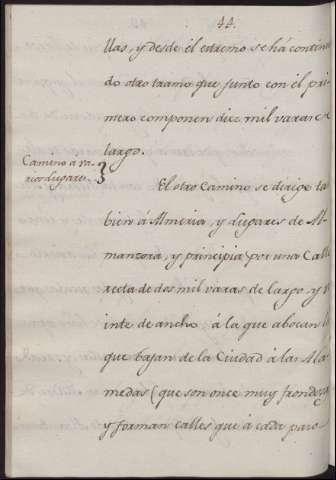 44.
llas, y desde el estremo se há contin
do otro tramo que junto con el pri
mero componen diez mil varas de
largo.
Camino a va-
rios lugares.
El otro Camino se dirige ta
bien á Almeria, y Lugares de Al
manzora, y principia por una Calle
recta de dos mil varas de largo y v
inte de ancho, á la que abocan l
que bajan de la Ciudad á las Ala
medas (que son once muy frondos
y forman calles que á cada paso